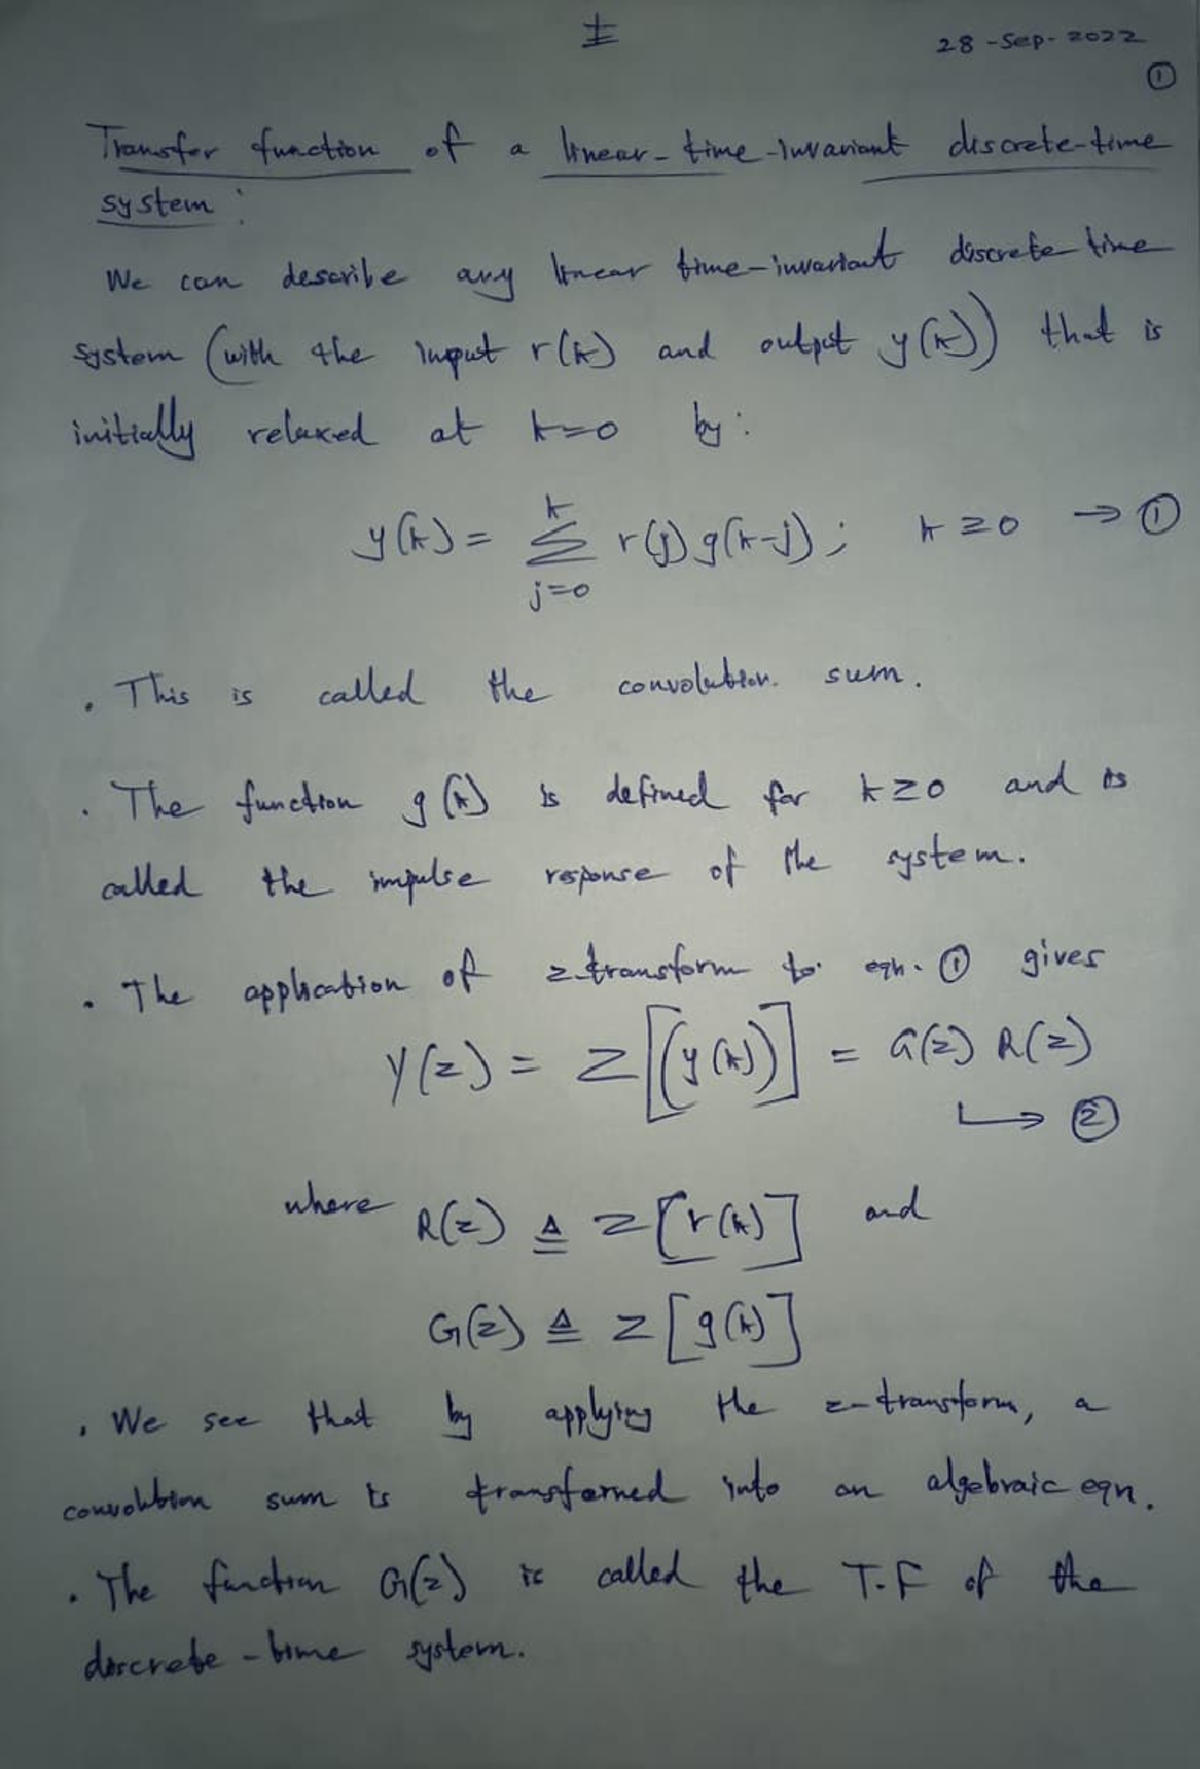 28-Sep-2022
①
Transfer function of a linear-time-invariant discrete-time
system:
We can describe any linear time-invariant discrete-time
system (with the input r(k) and output y(k)) that is
initially relaxed at k=0 by:
y(k) = Σ_{j=0}^{k} r(j) g(k-j); k ≥ 0 → ①
. This is called the convolution sum.
. The function g(k) is defined for k ≥ 0 and is
called the impulse response of the system.
. The application of z-transform to eqn. ① gives
Y(z) = Z[(y(k))] = G(z) R(z)
↳ ②
where R(z) ≜ Z[r(k)] and
G(z) ≜ Z[g(k)]
. We see that by applying the z-transform, a
convolution sum is transformed into an algebraic eqn.
. The function G(z) is called the T.F of the
discrete-time system.